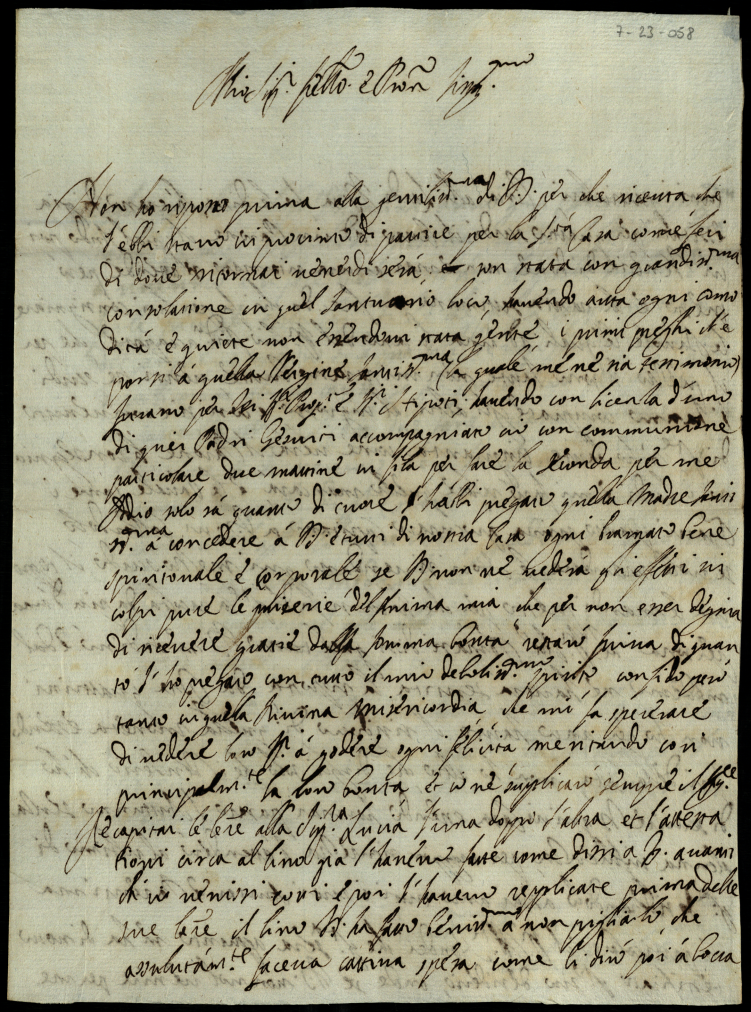 7-23-058
Mio Sig.r fratello e Pron
Non ho risposto prima alla gentiliss.ma di V.S. per che ricevuta che
l'ebbi stavo in procinto di partire per la S.ta Casa come feci
di dove ritornai venerdi sera son stata con grandiss.ma
consolatione in quel santuario loco havendo auta ogni como
dità e quiete non essendovi stata gente, i primi preghi ch'è
porsi à quella Vergine santiss.ma (la quale me ne sia testimonio)
furano per havendo con licenza d'uno
di quei Padri Gesuiti accompagniato ivi con communione
particolare due mattine in fila per lare la seconda per me
Iddio solo sà quanto di cuore l'habbi pregato quella Madre santis
s.ma à concedere à V.S. e tutti di nostra Casa ogni bramato bene
spirituale è corporale se V.S. non ne vederà gli effetti in
colpi pure le miserie dell'anima mia che per non esser degnia
di ricevere gratie dalla somma bontà restarò priva di quan
to l'ho pregato con tutto il mio deboliss.mo spirito confido però
tanto in quella Divina Misericordia, che mi fa sperare
di vedere loro SS.ri à godere ogni felicità meritando cosi
principalm.te la loro bontà et io ne suplicarò sempre il
Recapitai le lre alla Sig.ra Lucia l'una dopo l'altra et l'attesta
tioni circa al lino già l'haveva fatte come dissi a V.S. avanti
ch'io venissi costi è poi l'haveva repplicate prima delle
sue lre il lino V.S. ha fatto beniss.mo à non pigliarlo, che
assolutam.te faceva cattiva spesa come li dirò poi à bocca